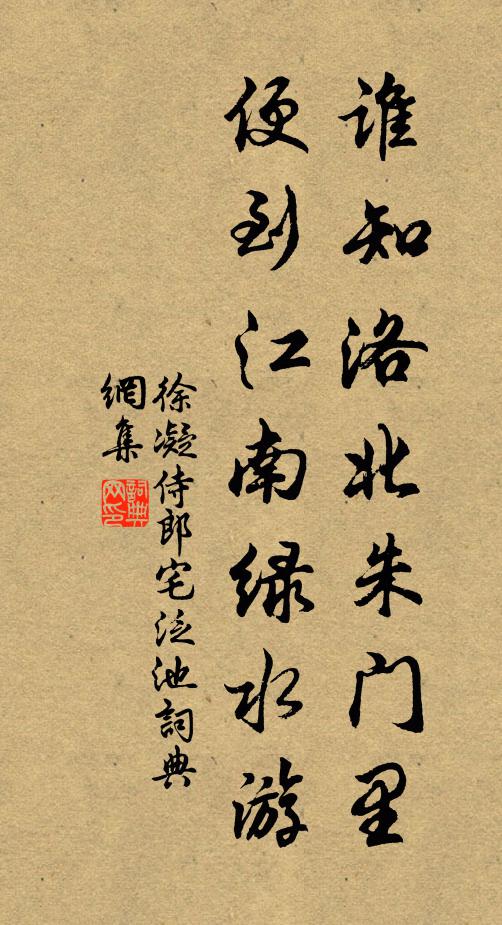 谁知洛北朱门里
便到江南绿水游
徐凝侍郎宅泛池詞典
網集
詞典
网印